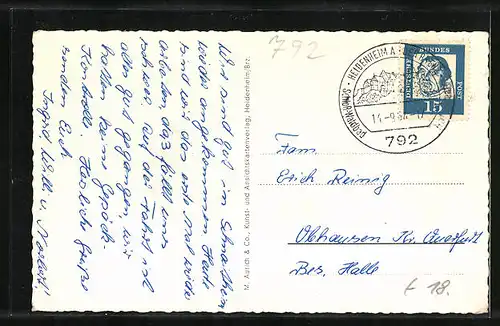 792
HEIDENHEIM A.
14.-9.64
792
DEUTSCHE BUNDESPOST
15
Wir sind gut in
wieder angekommen. Heute
sind wir das erste Mal wieder
arbeiten, das fällt uns
schwer. Auf der Fahrt ist
alles gut gegangen, wir
hatten keine Gepäck-
Kontrolle. Herzliche Grüße
senden Euch
Ingrid, Willi u. Norbert!
M. Autsch & Co., Kunst- und Ansichtskartenverlag, Heidenheim/Brz.
Fam.
Erich Reinig
Obhausen Kr. Querfurt
Bez. Halle
€ 18.